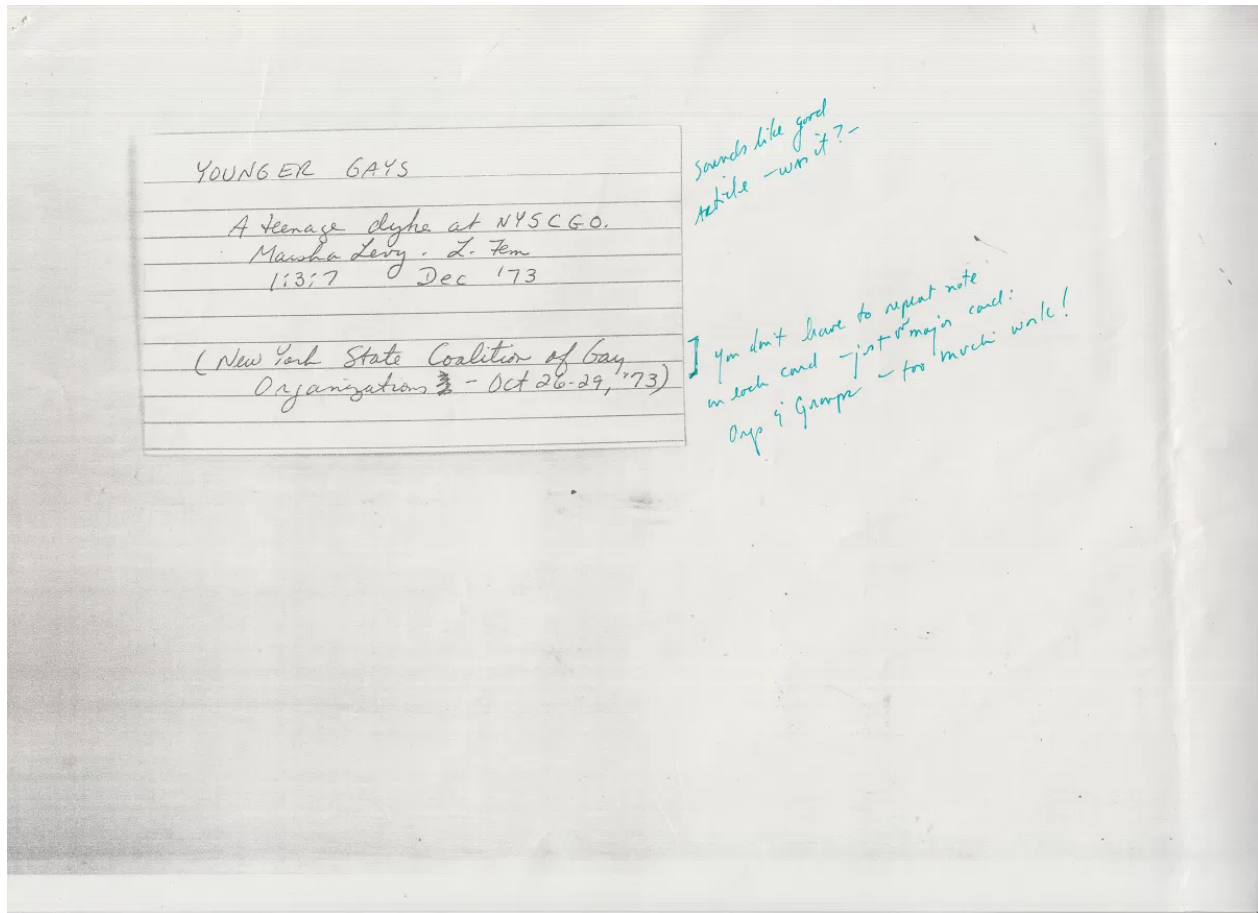 YOUNGER GAYS
A teenage dyke at NYSCGO.
Marsha Levy. L. Fem
1:3:7 Dec '73
(New York State Coalition of Gay
Organizations - Oct 26-29, '73)
Sounds like good
Article - was it? -
] you don't have to repeat note
on each card - just major card:
Orgs & Groups - too much work!